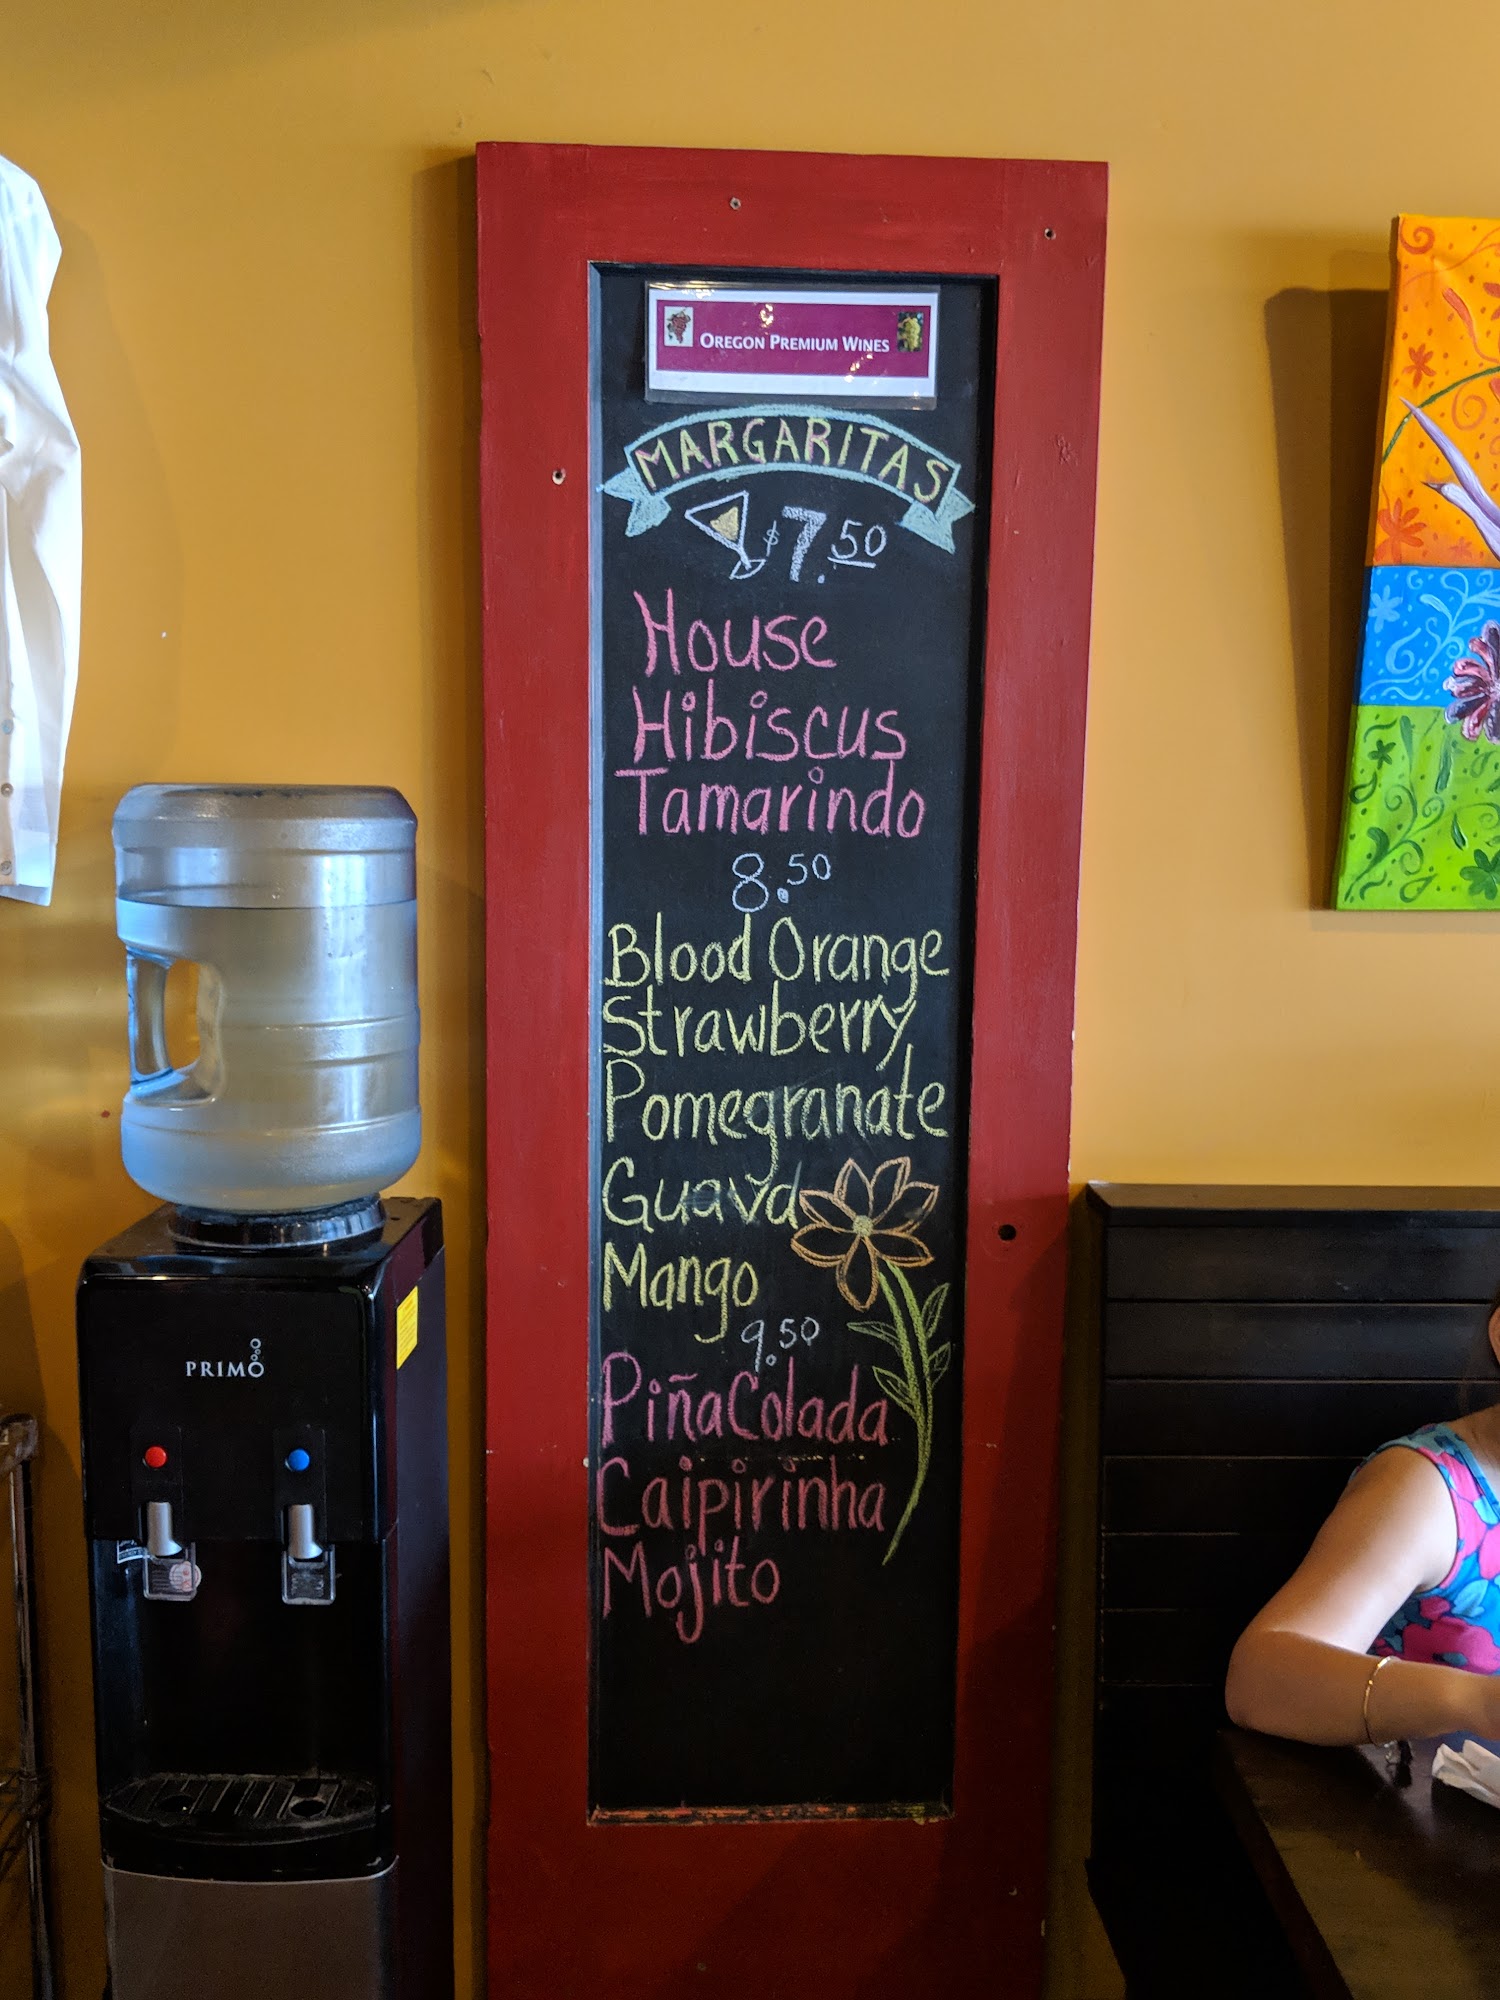 OREGON PREMIUM WINES
MARGARITAS
$7.50
House
Hibiscus
Tamarindo
8.50
Blood Orange
Strawberry
Pomegranate
Guava
Mango
9.50
Piña Colada
Caipirinha
Mojito
PRIMO